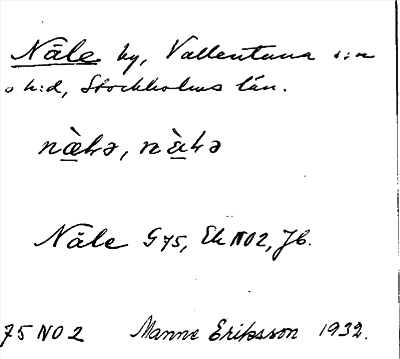 Näle by, Vallentuna s:n
o h:d, Stockholms län.
Näle G75, Ek NO2, Jb.
75 NO 2 Manne Eriksson 1932.